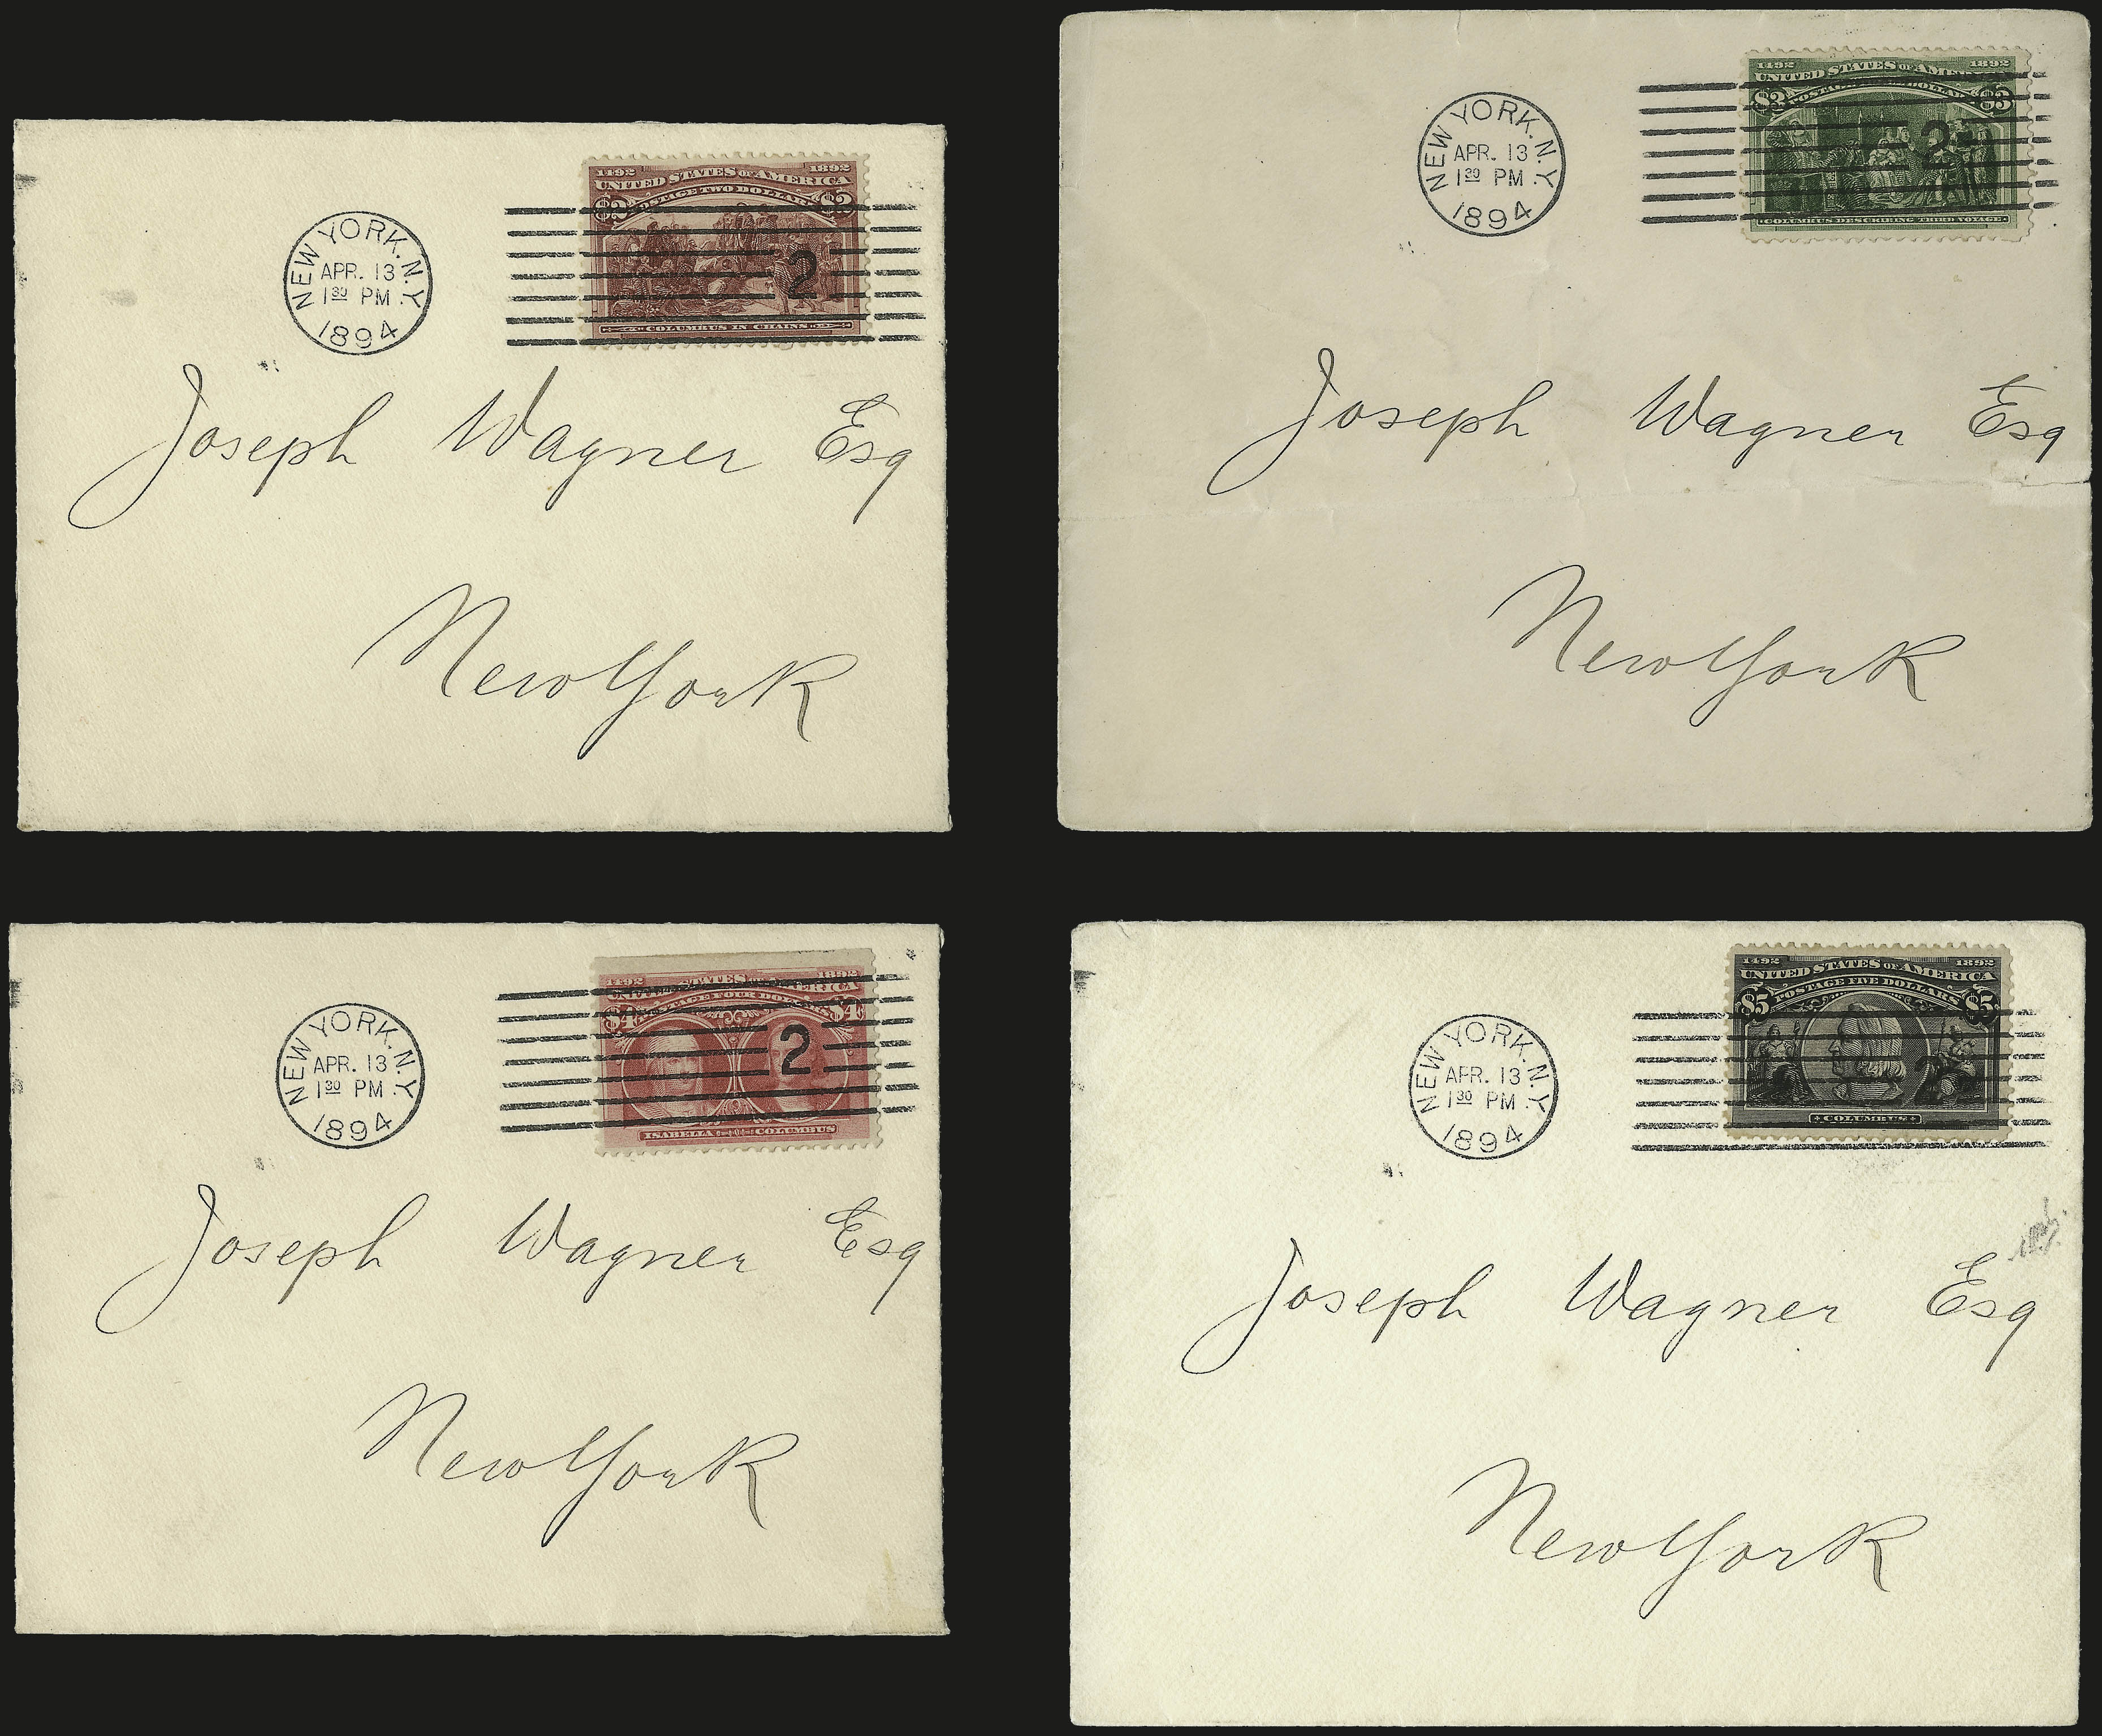 1492 1892
UNITED STATES OF AMERICA
POSTAGE TWO DOLLARS
$2 $2
NEW YORK. N.Y.
APR. 13
1 30 PM
1894
2
COLUMBUS IN CHAINS
Joseph Wagner Esq
New York
1492 1892
UNITED STATES OF AMERICA
$3 POSTAGE DOLLARS $3
NEW YORK. N.Y.
APR. 13
1 30 PM
1894
2
COLUMBUS DESCRIBING THIRD VOYAGE
Joseph Wagner Esq
New York
1492 1892
UNITED STATES OF AMERICA
POSTAGE FOUR DOLLARS
$4 $4
NEW YORK. N.Y.
APR. 13
1 30 PM
1894
2
ISABELLA COLUMBUS
Joseph Wagner Esq
New York
1492 1892
UNITED STATES OF AMERICA
POSTAGE FIVE DOLLARS
$5 $5
NEW YORK. N.Y.
APR. 13
1 30 PM
1894
2
COLUMBUS
Joseph Wagner Esq
New York